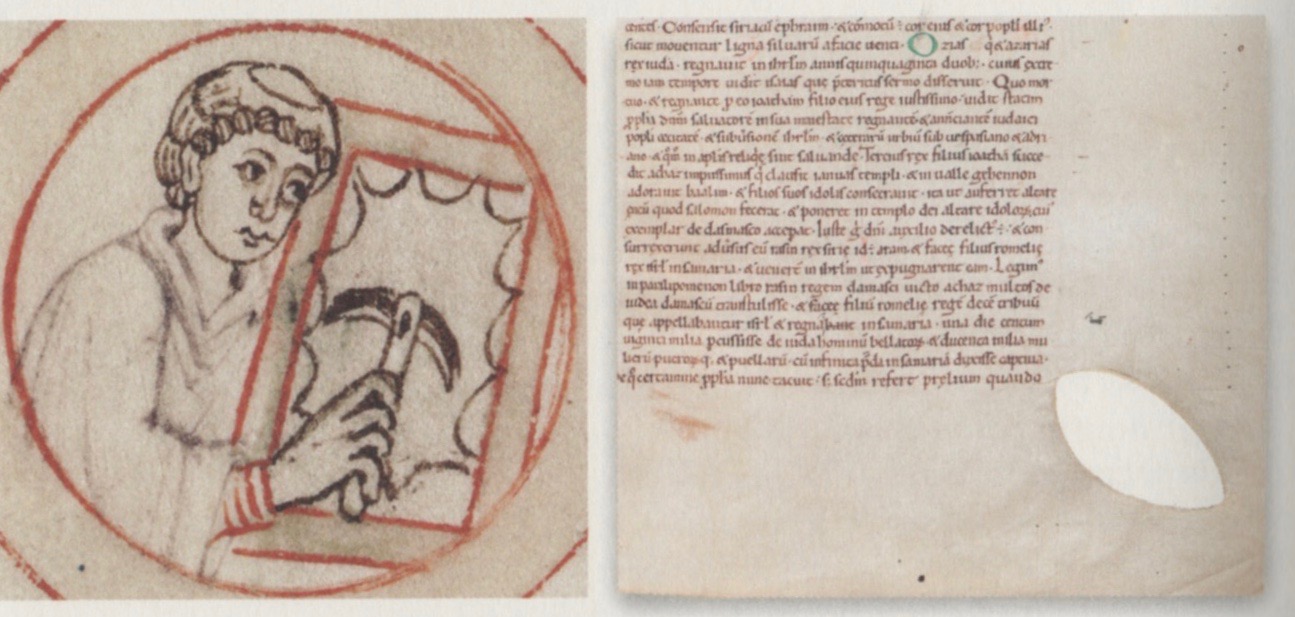 sicut mouentur ligna siluarū a facie uenti · Ozias q̄ & azarias
rex iuda · regnauit in ihrl̄m annis quinquaginta duob; · cuius extre
mo iam tempore uidit isaias que p̄teritus sermo disseruit · Quo mor
tuo · & regnante p eo ioathan filio eius rege iustissimo · uidit statim
ppl̄i dn̄m saluatorē in sua maiestate regnantē & annūciantē iudaici
populi cecitatē · & subūsionē ihrl̄m · & ceterarū urbiū sub uespasiano & adri
ano · & qm̄ in apl̄is reliq̄ sint saluande · Tercius rex filius ioathā succe
dit achaz impiissimus q̄ clausit ianuas templi · & in ualle gehennon
adorauit baalim · & filios suos idolis consecrauit · ita ut auferret altare
quod salomon fecerat · & poneret in templo dei altare idoloꝝ cui
exemplar de damasco acceperat · Iuste g̊ dn̄i auxilio derelict̄ ÷ · & con
surrexerunt aduersus eū rasin rex sirię id ÷ aram · & facee filius romelię
rex isrl̄ in samaria · & uenerē in ihrl̄m ut expugnarent eam · Legim⁹
in paralipomenon libro rasin regem damasci uicto achaz multos de
iudea damascū transtulisse · & facee filiū romelię regē decē tribuū
que appellabantur isrl̄ & regnabant in samaria · una die centum
uiginti milia pcussisse de iuda hominū bellatoꝝ · & ducenta milia mu
lierū pueroꝝ q; & puellarū · cū infinita p̄da in samariā duxisse captiua ·
certamine ppl̄ia nunc tacuit · s; sedm̄ refert prelium quando